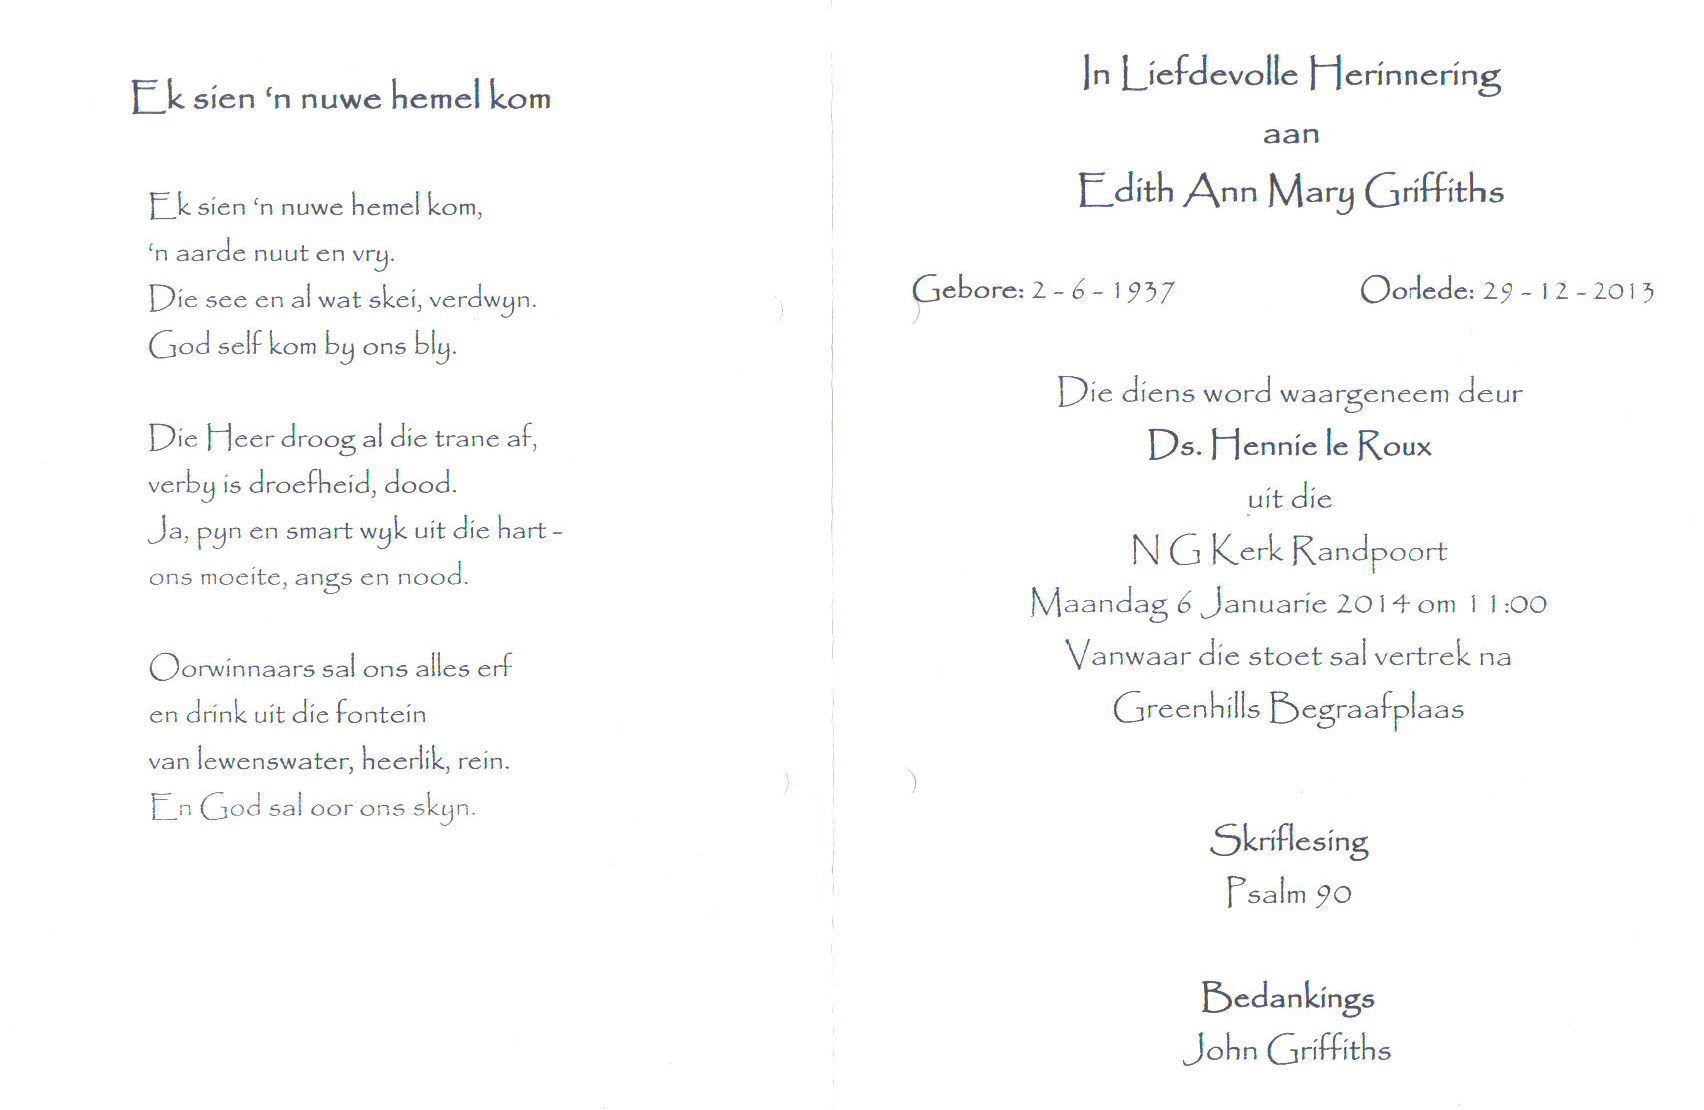 Ek sien ‘n nuwe hemel kom
Ek sien ‘n nuwe hemel kom,
‘n aarde nuut en vry.
Die see en al wat skei, verdwyn.
God self kom by ons bly.
Die Heer droog al die trane af,
verby is droefheid, dood.
Ja, pyn en smart wyk uit die hart –
ons moeite, angs en nood.
Oorwinnaars sal ons alles erf
en drink uit die fontein
van lewenswater, heerlik, rein.
En God sal oor ons skyn.
In Liefdevolle Herinnering
aan
Edith Ann Mary Griffiths
Gebore: 2 – 6 – 1937 Oorlede: 29 – 12 – 2013
Die diens word waargeneem deur
Ds. Hennie le Roux
uit die
N G Kerk Randpoort
Maandag 6 Januarie 2014 om 11:00
Vanwaar die stoet sal vertrek na
Greenhills Begraafplaas
Skriflesing
Psalm 90
Bedankings
John Griffiths